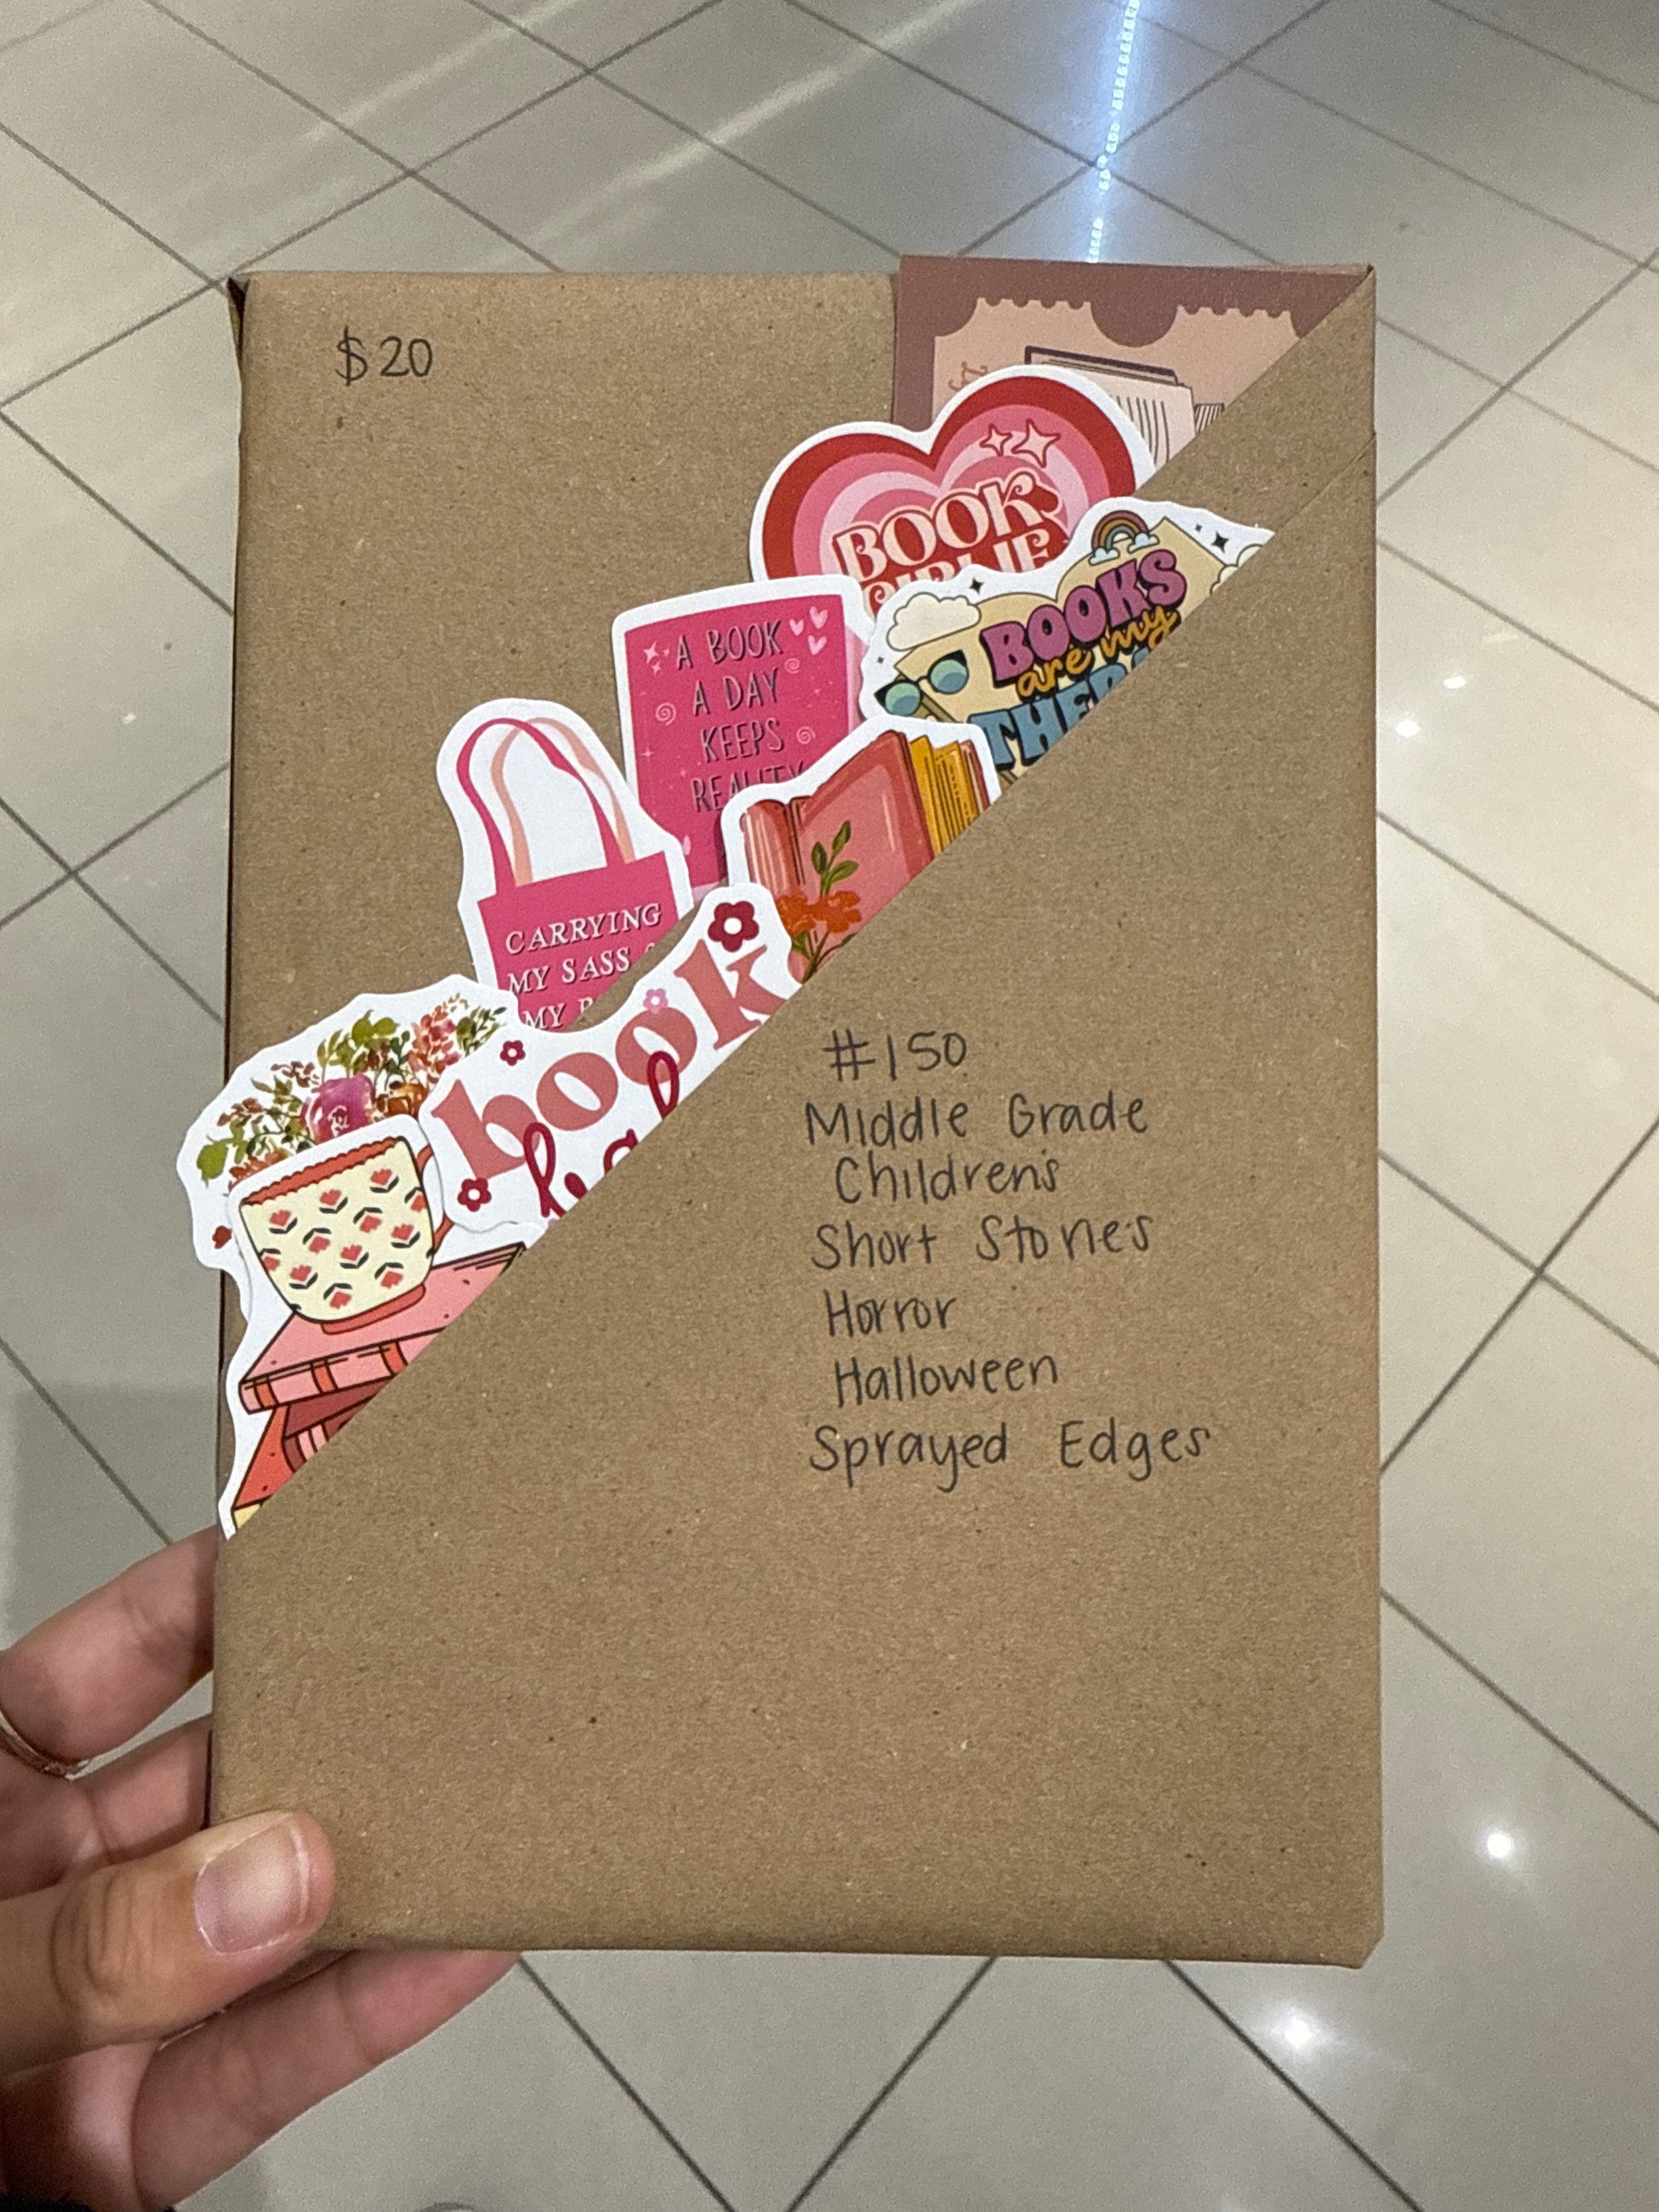 $20
BOOK
GIRLIE
BOOKS
are my
A BOOK
A DAY
KEEPS
REALITY
CARRYING
MY SASS
MY
book
#150
Middle Grade
Children's
Short Stories
Horror
Halloween
Sprayed Edges